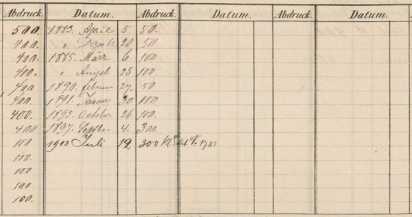 Abdruck. Datum. Abdruck. Datum. Abdruck. Datum.
500. 1883. April 5. 50.
400. " 20. 50.
400. 1885. März 6. 100.
400. " August 25. 100.
400 1890. Februar 27. 50
400. 1891. Januar 30. 100.
400. 1893. October 26. 100.
400 1897. Septbr. 4. 300.
100 1900 Juli 19. 300
100.
100
100
100.